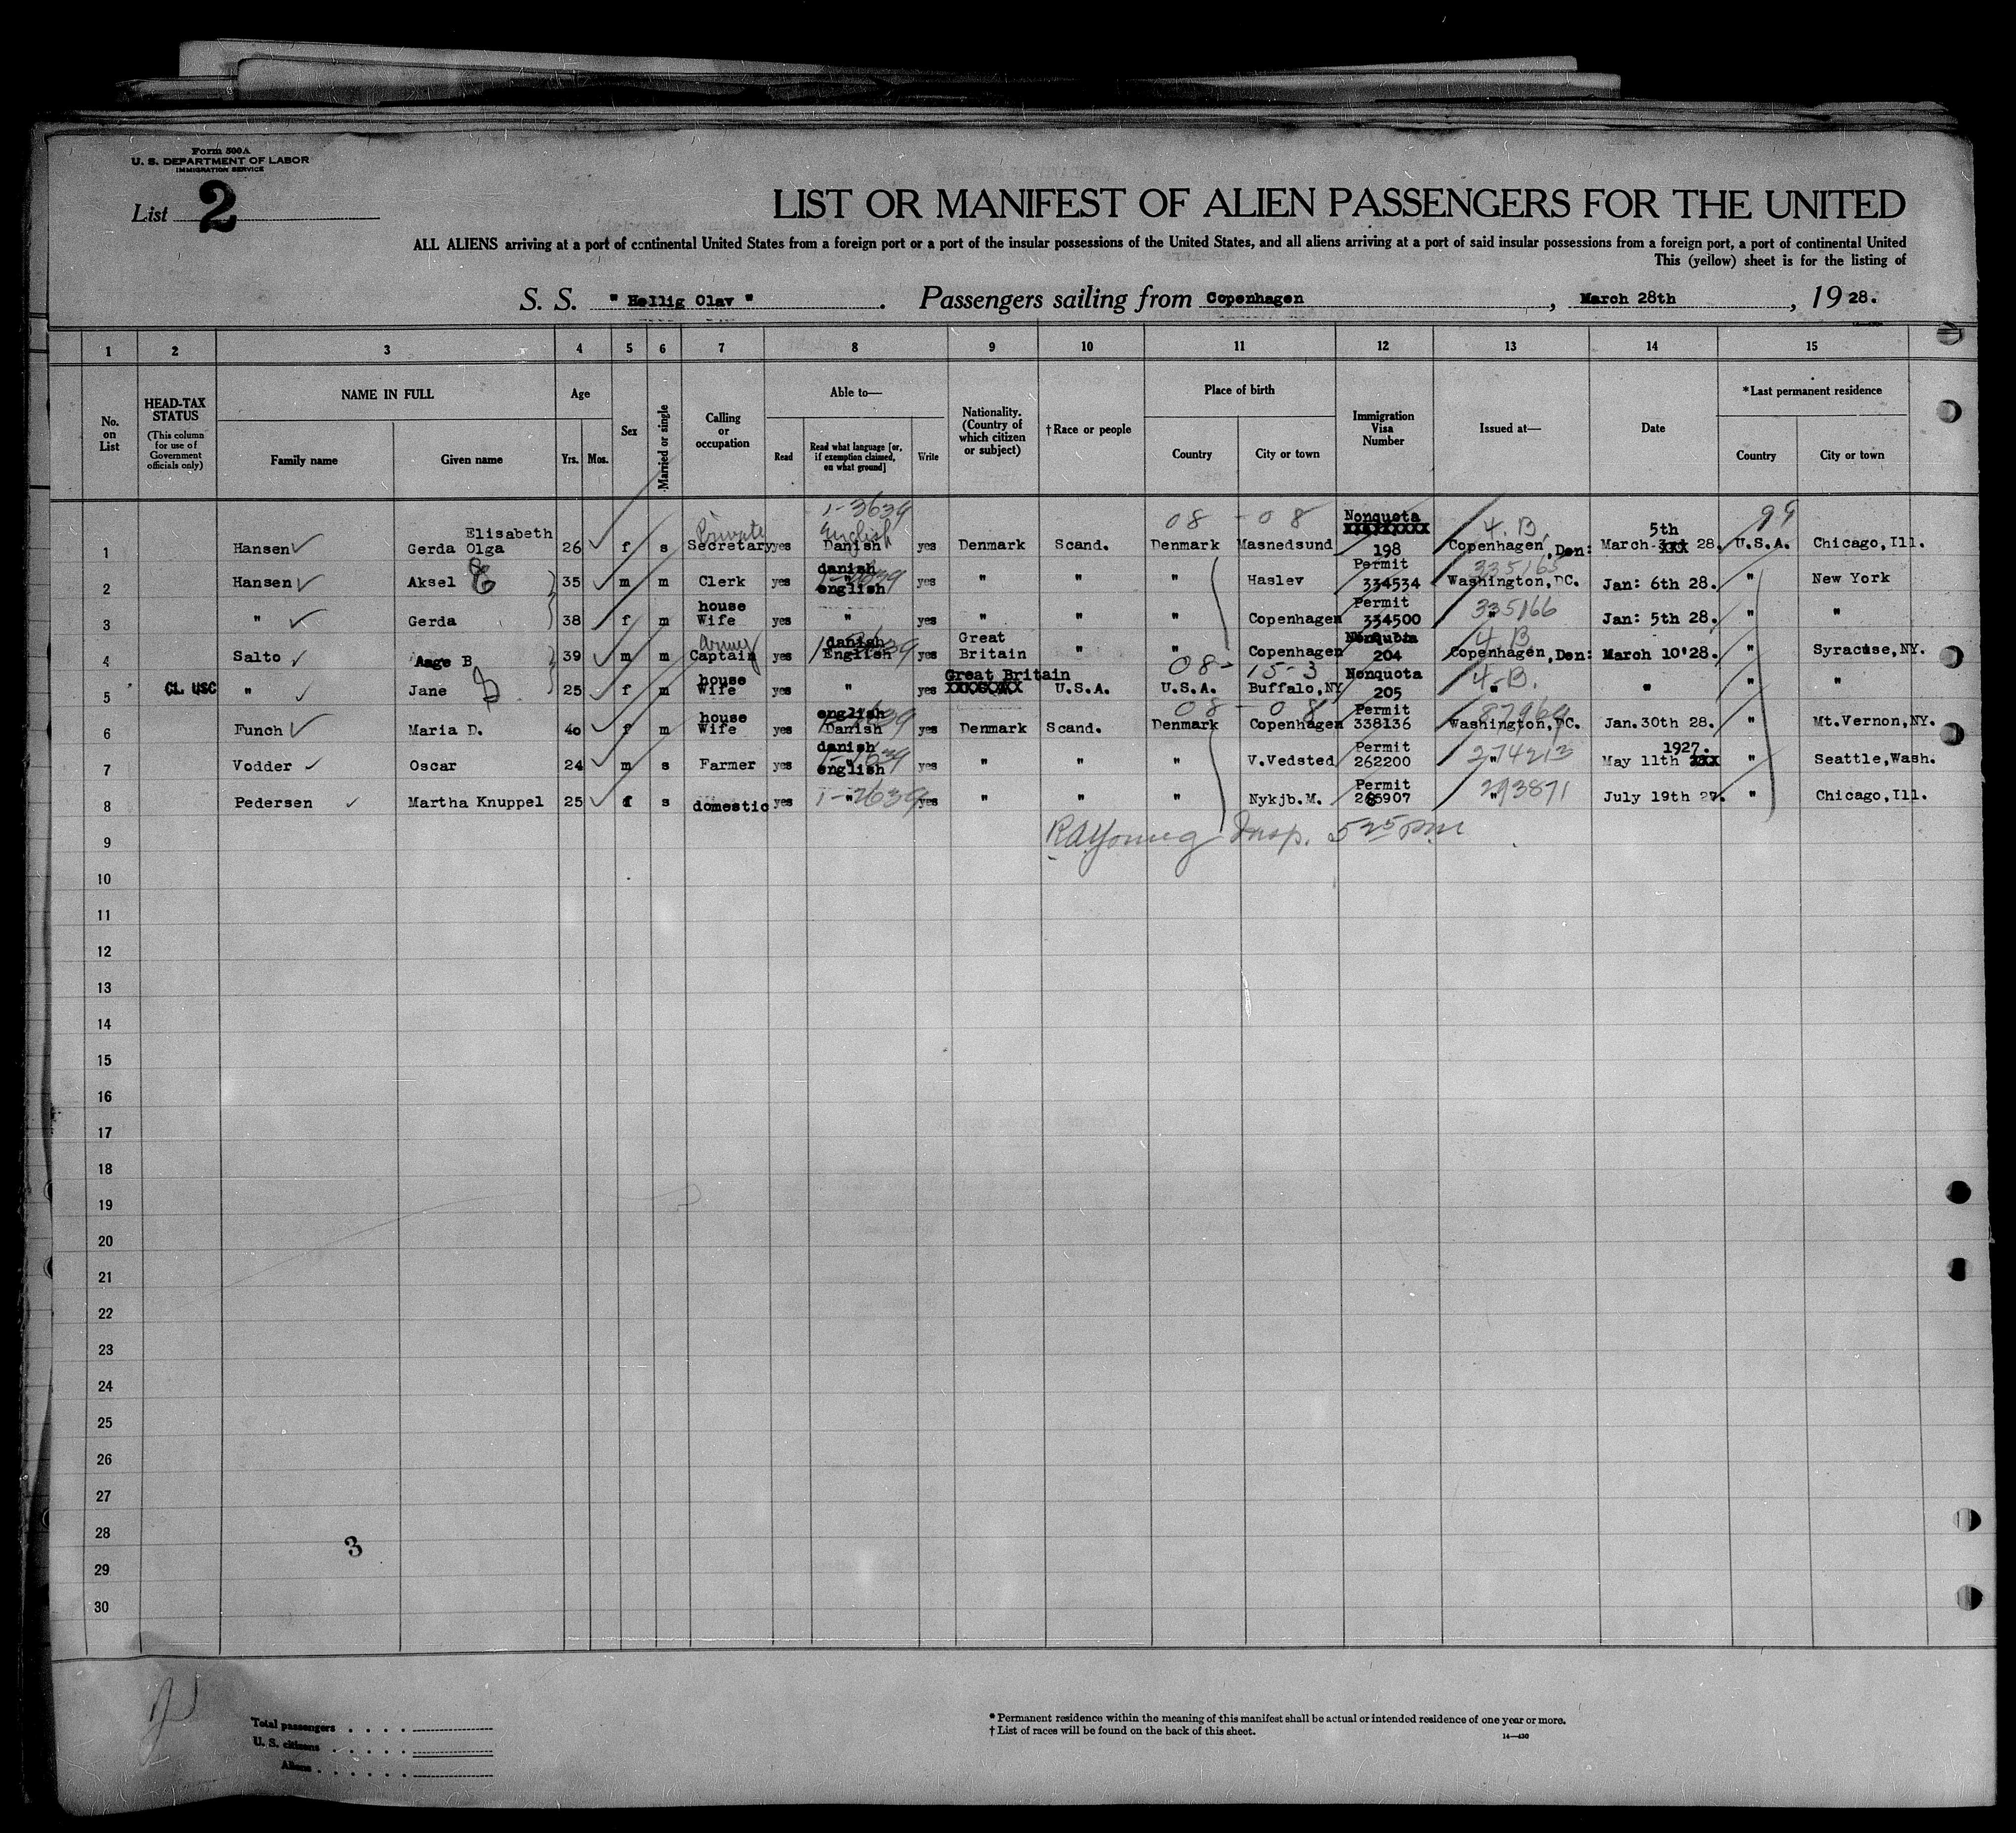 Form 500A
U. S. DEPARTMENT OF LABOR
IMMIGRATION SERVICE
List 2
LIST OR MANIFEST OF ALIEN PASSENGERS FOR THE UNITED
ALL ALIENS arriving at a port of continental United States from a foreign port or a port of the insular possessions of the United States, and all aliens arriving at a port of said insular possessions from a foreign port, a port of continental United
This (yellow) sheet is for the listing of
S. S. " Hellig Olav " . Passengers sailing from Copenhagen , March 28th , 1928.
1 2 3 4 5 6 7 8 9 10 11 12 13 14 15
No. on List
HEAD-TAX STATUS (This column for use of Government officials only)
NAME IN FULL
Family name Given name
Age
Yrs. Mos.
Sex
Married or single
Calling or occupation
Able to—
Read Read what language [or, if exemption claimed, on what ground] Write
Nationality. (Country of which citizen or subject)
†Race or people
Place of birth
Country City or town
Immigration Visa Number
Issued at—
Date
*Last permanent residence
Country City or town
1-3639
08 - 08 Nonquota 4.B. 5th 99
Elisabeth Private English XXXXXXXXX
1 Hansen Gerda Olga 26 f s Secretary yes Danish yes Denmark Scand. Denmark Masnedsund 198 Copenhagen, Den: March XXX 28. U.S.A. Chicago, Ill.
danish Permit 335165
2 Hansen Aksel E 35 m m Clerk yes " english yes " " " Haslev 334534 Washington, DC. Jan: 6th 28. " New York
house Permit 335166
3 " Gerda 38 f m Wife yes " yes " " " Copenhagen 334500 " Jan: 5th 28. " "
Army danish Great Nonquota 4.B
4 Salto Aage B 39 m m Captain yes English yes Britain " " Copenhagen 204 Copenhagen, Den: March 10'28. " Syracuse, NY.
house Great Britain 08- 15-3 Nonquota 4.B.
5 CL. USC " Jane J 25 f m Wife yes " yes U.S.A. U.S.A. Buffalo, NY 205 " " " "
house english 08 - 08 Permit
6 Funch Maria D. 40 f m Wife yes Danish yes Denmark Scand. Denmark Copenhagen 338136 Washington, DC. Jan. 30th 28. " Mt. Vernon, NY.
danish Permit 274213 1927.
7 Vodder Oscar 24 m s Farmer yes " english yes " " " V. Vedsted 262200 " May 11th XXX " Seattle, Wash.
1-2639 Permit 293871
8 Pedersen Martha Knuppel 25 f s domestic yes " yes " " " Nykjb. M. " July 19th 27. " Chicago, Ill.
9 R A Young Insp. 5 25 pm
10
11
12
13
14
15
16
17
18
19
20
21
22
23
24
25
26
27
28
3
29
30
Total passengers
U. S. citizens
Aliens
* Permanent residence within the meaning of this manifest shall be actual or intended residence of one year or more.
† List of races will be found on the back of this sheet.
14—430